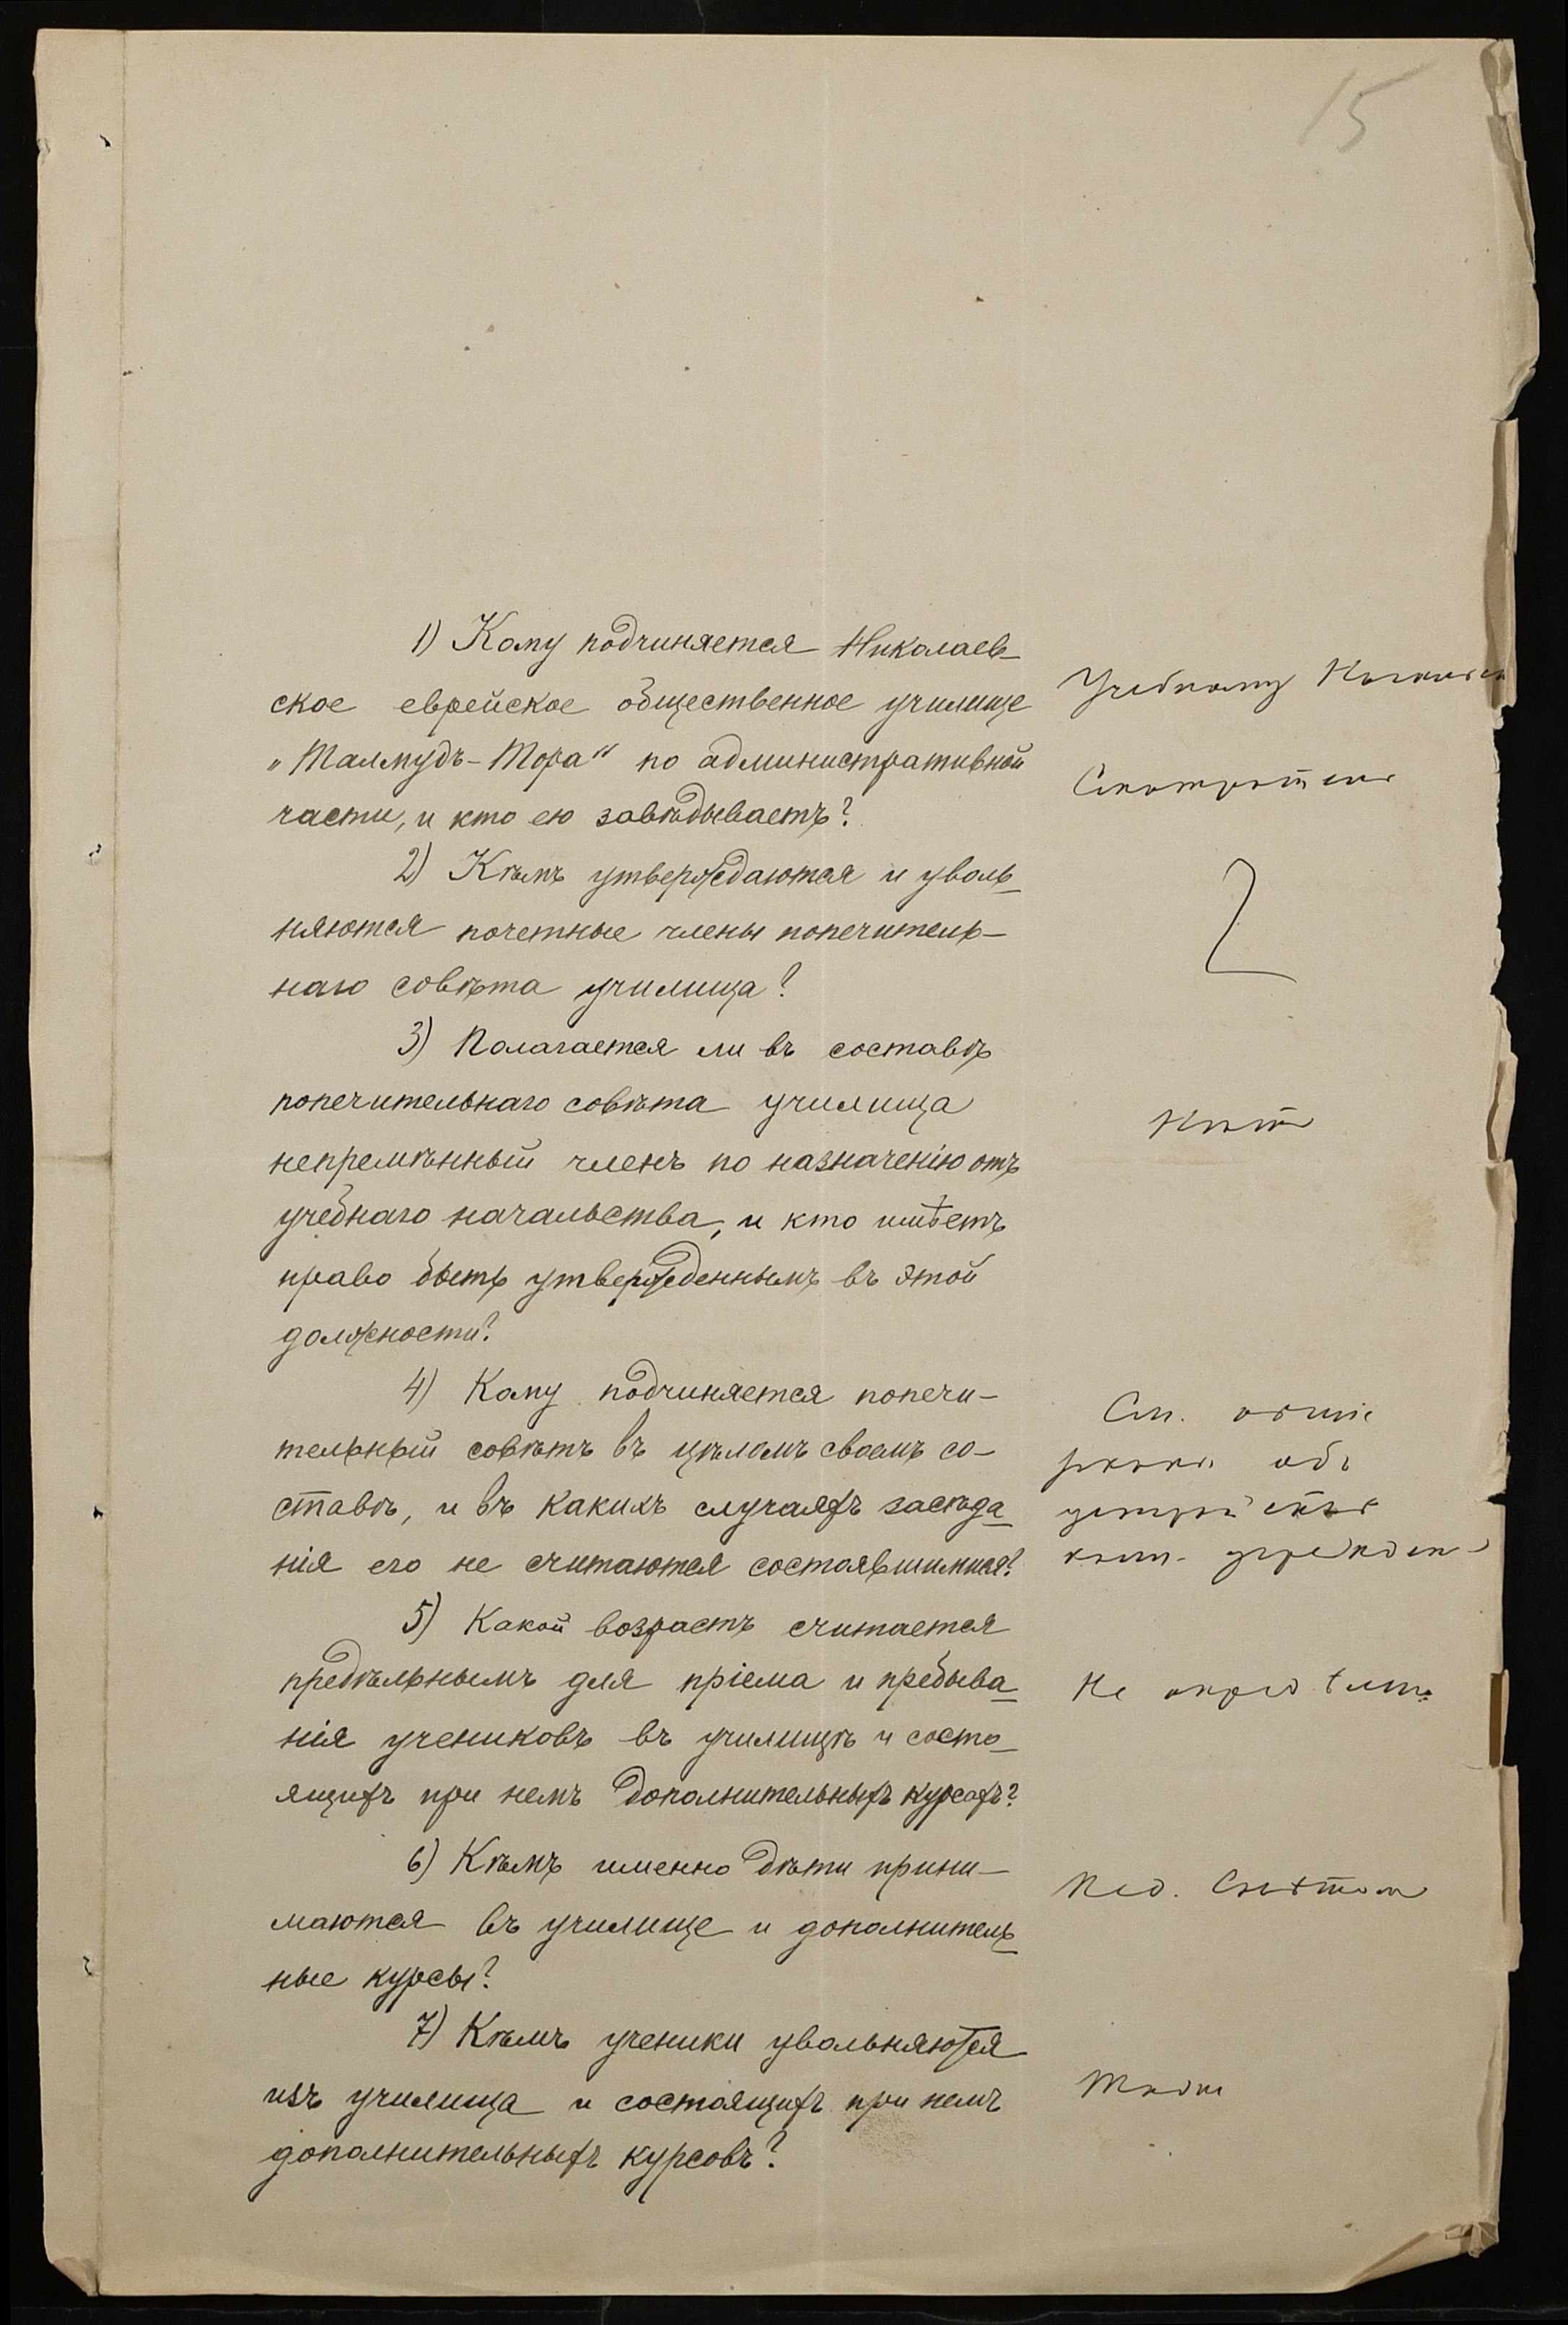 15
1) Кому подчиняется Николаев-
ское еврейское общественное училище
„Талмудъ-Тора" по административной
части, и кто ею завѣдываетъ?
Учебному
Смотритель
2) Кѣмъ утверждаются и уволь-
няются почетные члены попечитель-
наго совѣта училища?
3) Полагается ли въ составъ
попечительнаго совѣта училища
непремѣнный членъ по назначенію отъ
учебнаго начальства, и кто имѣетъ
право быть утвержденнымъ въ этой
должности?
Нѣтъ
4) Кому подчиняется попечи-
тельный совѣтъ въ цѣломъ своемъ со-
ставѣ, и въ какихъ случаяхъ засѣда-
нія его не считаются состоявшимися?
См. общіе
объ
5) Какой возрастъ считается
предѣльнымъ для пріема и пребыва-
нія учениковъ въ училищѣ и состо-
ящихъ при немъ дополнительныхъ курсахъ?
Не опредѣленъ
6) Кѣмъ именно дѣти прини-
маются въ училище и дополнитель-
ные курсы?
Пед. Совѣтомъ
7) Кѣмъ ученики увольняются
изъ училища и состоящихъ при немъ
дополнительныхъ курсовъ?